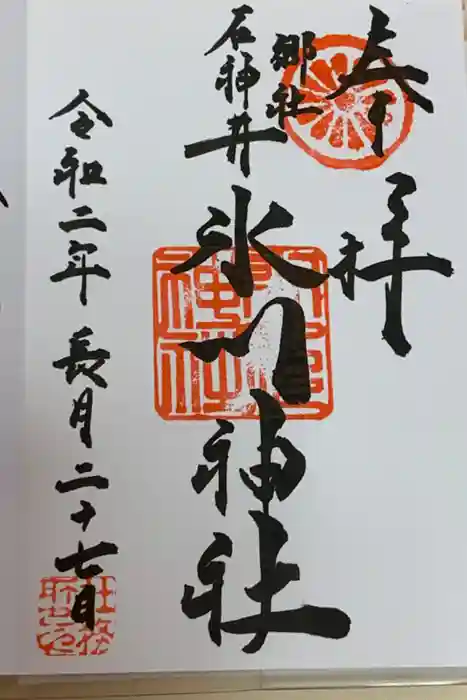 奉拝
郷社
石神井
氷川神社
令和二年長月二十七日
社務所之印